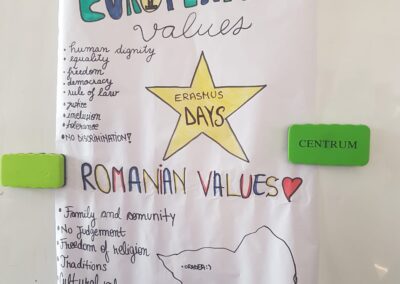 EUROPEAN
values
• human dignity
• equality
• freedom
• democracy
• rule of law
• justice
• inclusion
• tolerance
• NO DISCRIMINATION!
ERASMUS
DAYS
CENTRUM
ROMANIAN VALUES
• Family and comunity
• No Judgement
• Freedom of religion
• Traditions
• ORADEA:)